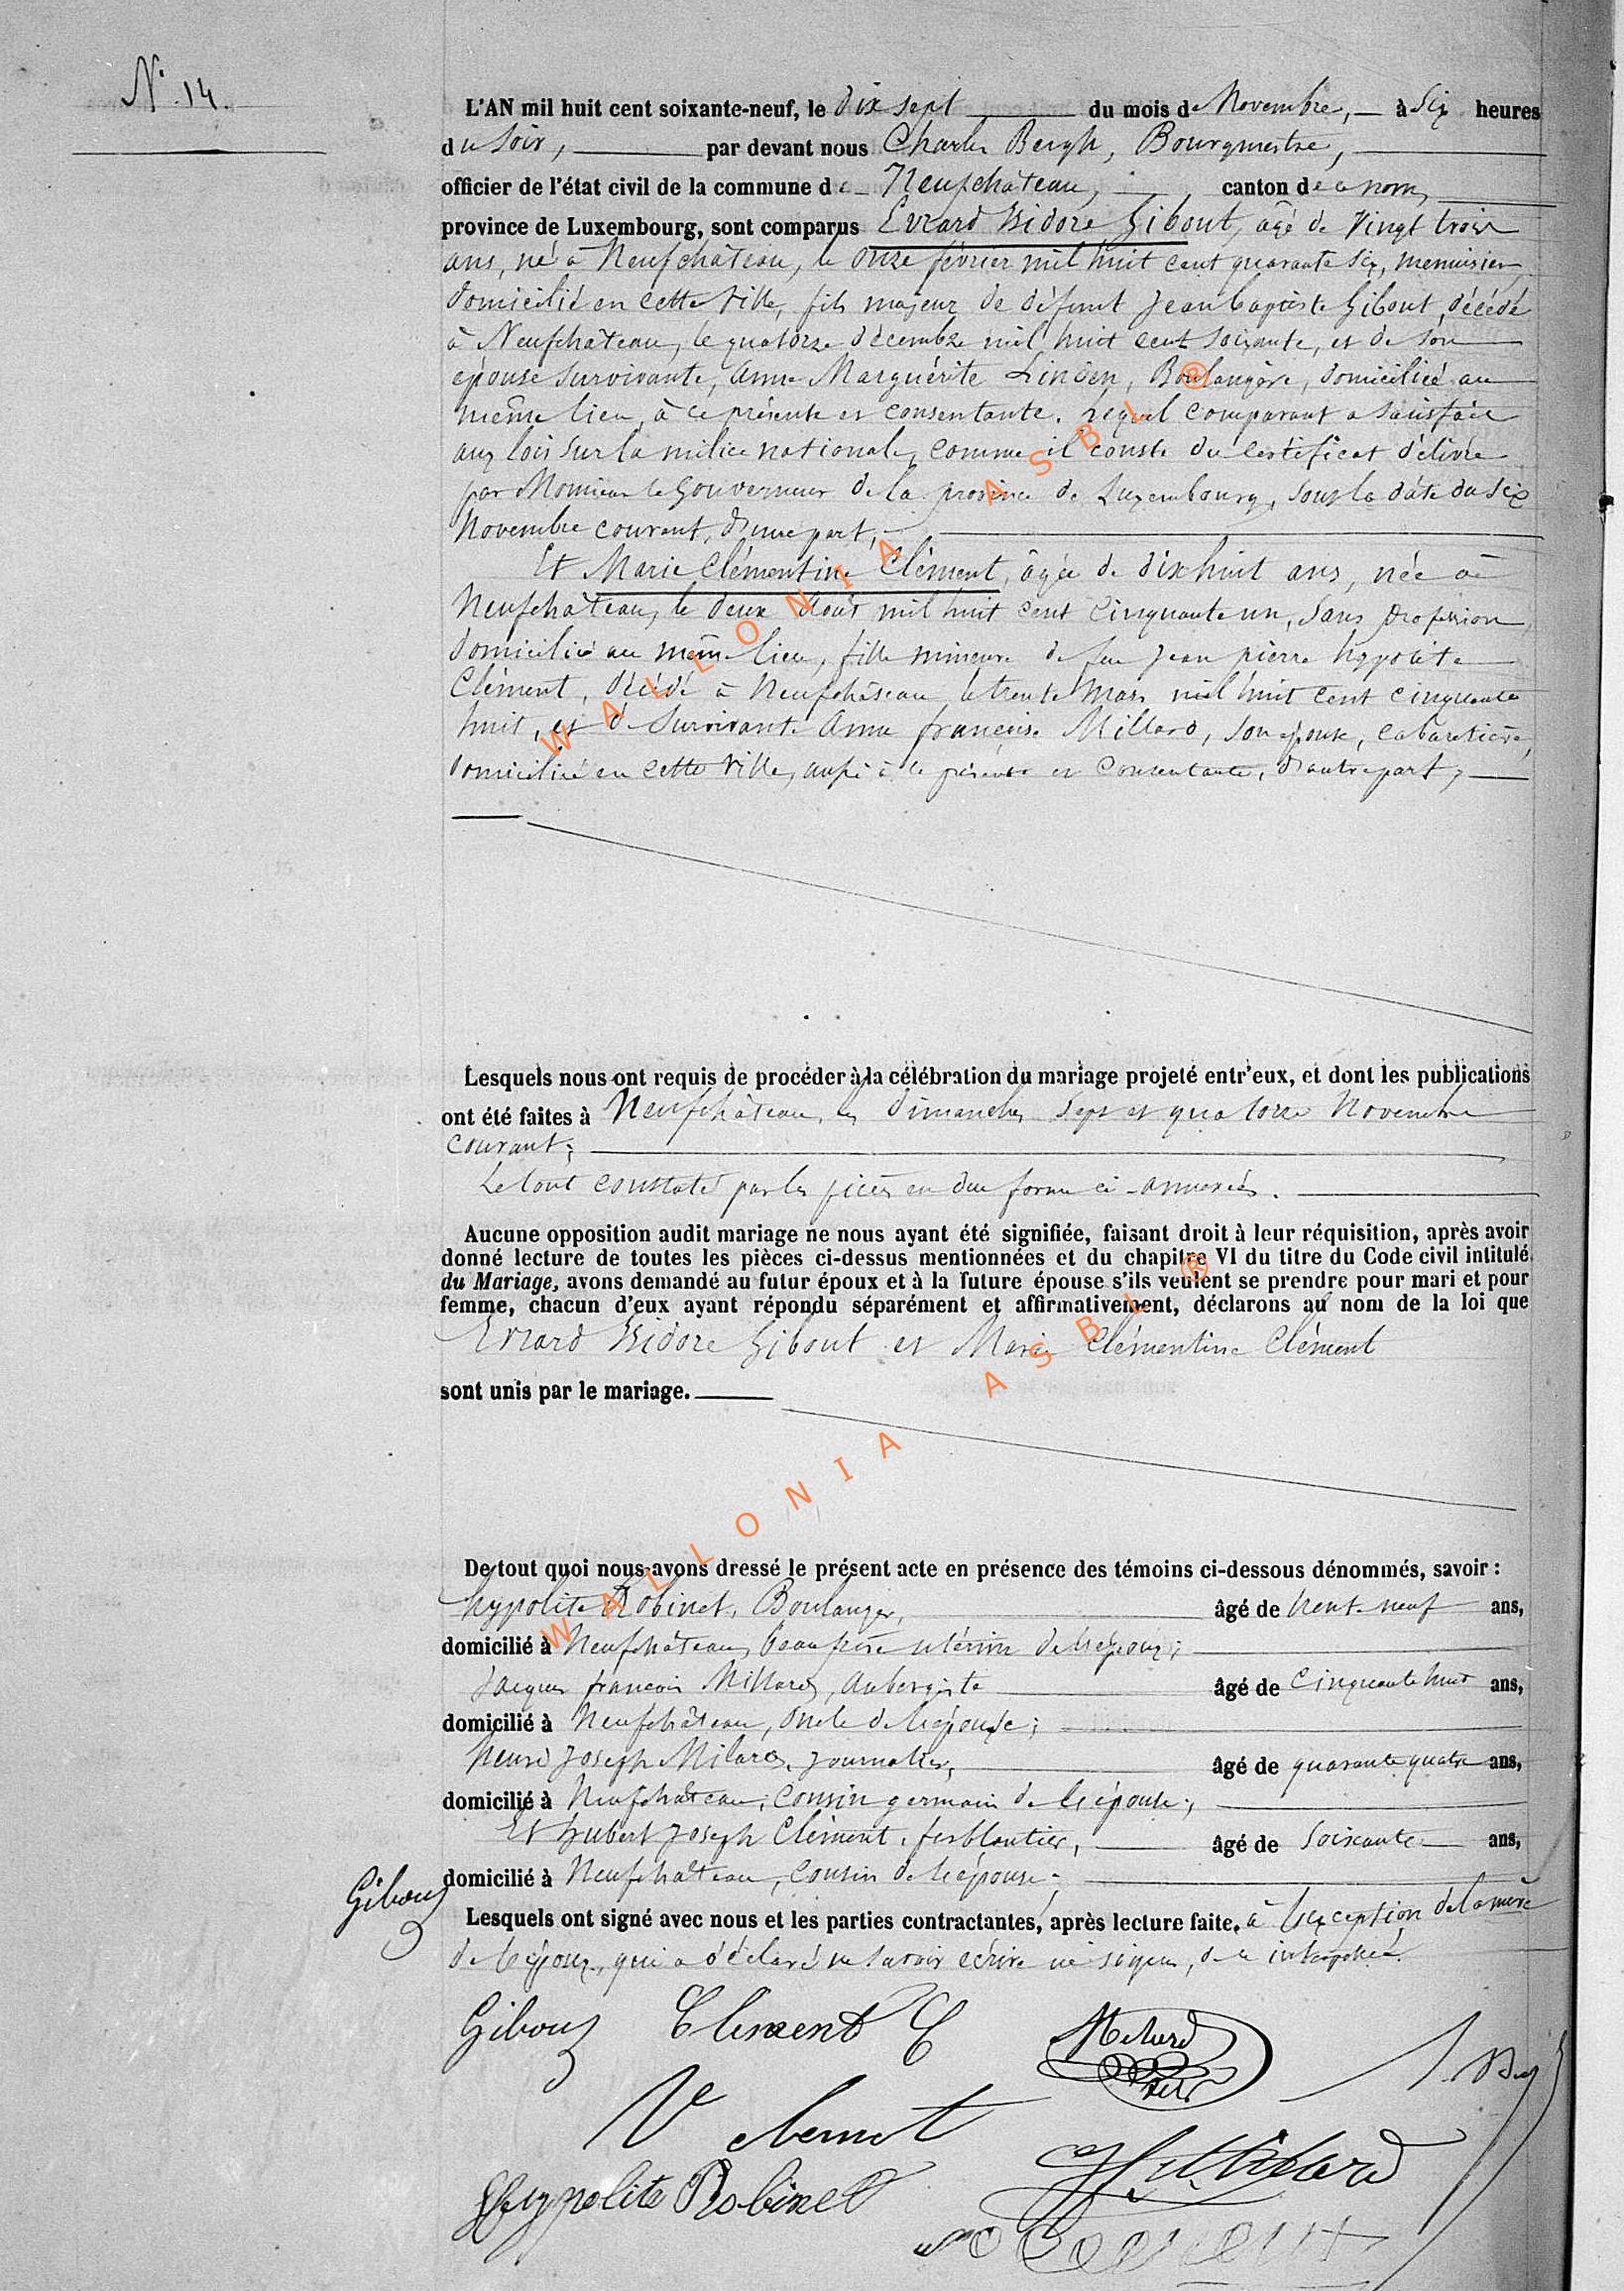 N° 14.
L'AN mil huit cent soixante-neuf, le dix sept du mois de Novembre, à Six heures
du Soir, par devant nous Charles Bergh, Bourgmestre,
officier de l'état civil de la commune de Neufchâteau, canton de ce nom,
province de Luxembourg, sont comparus Evrard Isidore Gibout, âgé de Vingt trois
ans, né à Neufchâteau, le onze février mil huit cent quarante six, menuisier,
domicilié en cette Ville, fils majeur de défunt Jean baptiste Gibout, décédé
à Neufchâteau, le quatorze décembre mil huit cent soixante, et de son
épouse survivante, Anne Marguérite Linden, Boulangère, domiciliée au
même lieu, à ce présente et consentante. Lequel comparant a satisfait
aux lois sur la milice nationale, comme il conste du certificat délivré
par Monsieur le Gouverneur de la province de Luxembourg, sous la date du six
Novembre courant, d'une part,
Et Marie Clémentine Clément, âgée de dix huit ans, née à
Neufchâteau, le deux Août mil huit cent Cinquante un, Sans profession,
domiciliée au même lieu, fille mineure de feu Jean pierre hypolite
Clément, décédé à Neufchâteau, le trente Mars mil huit cent cinquante
huit, et de Survivante Anne françoise Millard, son épouse, cabaretière,
domiciliée en cette Ville, aussi à ce présente et Consentante, d'autre part,
Lesquels nous ont requis de procéder à la célébration du mariage projeté entr'eux, et dont les publications
ont été faites à Neufchâteau, les dimanches Sept et quatorze Novembre
courant;
Le tout constaté par les pièces en due forme ci-annexées.
Aucune opposition audit mariage ne nous ayant été signifiée, faisant droit à leur réquisition, après avoir
donné lecture de toutes les pièces ci-dessus mentionnées et du chapitre VI du titre du Code civil intitulé
du Mariage, avons demandé au futur époux et à la future épouse s'ils veulent se prendre pour mari et pour
femme, chacun d'eux ayant répondu séparément et affirmativement, déclarons au nom de la loi que
Evrard Isidore Gibout et Marie Clémentine Clément
sont unis par le mariage.
De tout quoi nous avons dressé le présent acte en présence des témoins ci-dessous dénommés, savoir :
hypolite Robinet, Boulanger, âgé de trente-neuf ans,
domicilié à Neufchâteau, beau frère utérin de l'époux;
Jacques françois Millard, Aubergiste âgé de Cinquante huit ans,
domicilié à Neufchâteau, oncle de l'épouse;
Henri Joseph Milard, Journalier, âgé de quarante quatre ans,
domicilié à Neufchâteau, Cousin germain de l'épouse;
Et hubert Joseph Clément, ferblantier, âgé de Soixante ans,
domicilié à Neufchâteau, Cousin de l'épouse;
Gibout
Lesquels ont signé avec nous et les parties contractantes, après lecture faite, à l'exception de la mère
de l'époux, qui a déclaré ne savoir écrire ni signer, de ce interpellée.
Gibout Clement C Milard
Ve clement
Hypolite Robinet HJ Milard
WALLONIA ASBL ®
WALLONIA ASBL ®